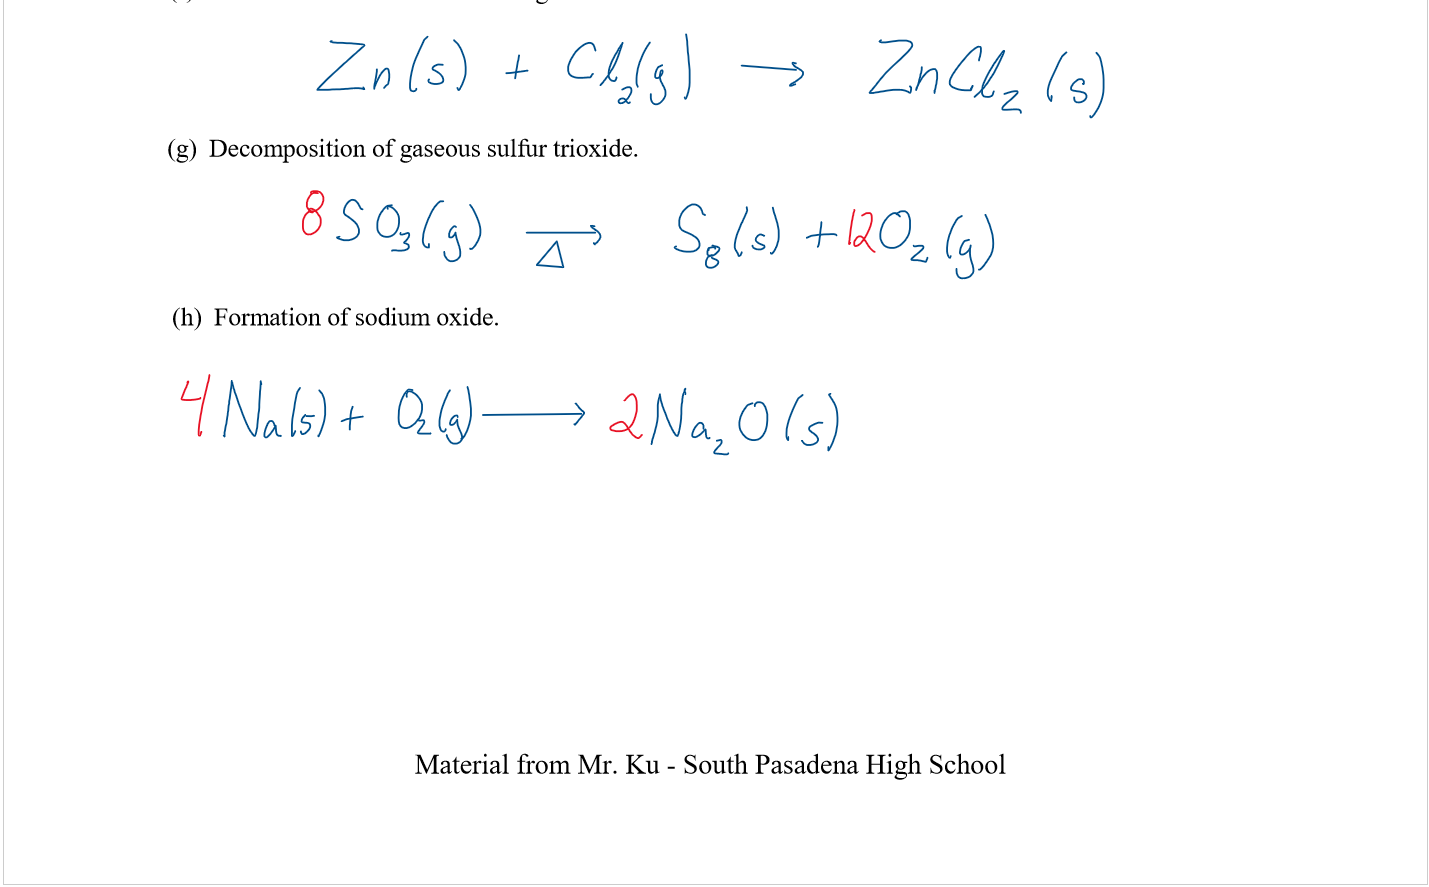 Zn(s) + Cl₂(g) → ZnCl₂(s)
(g) Decomposition of gaseous sulfur trioxide.
8SO₃(g) →Δ S₈(s) + 12O₂(g)
(h) Formation of sodium oxide.
4Na(s) + O₂(g) → 2Na₂O(s)
Material from Mr. Ku - South Pasadena High School